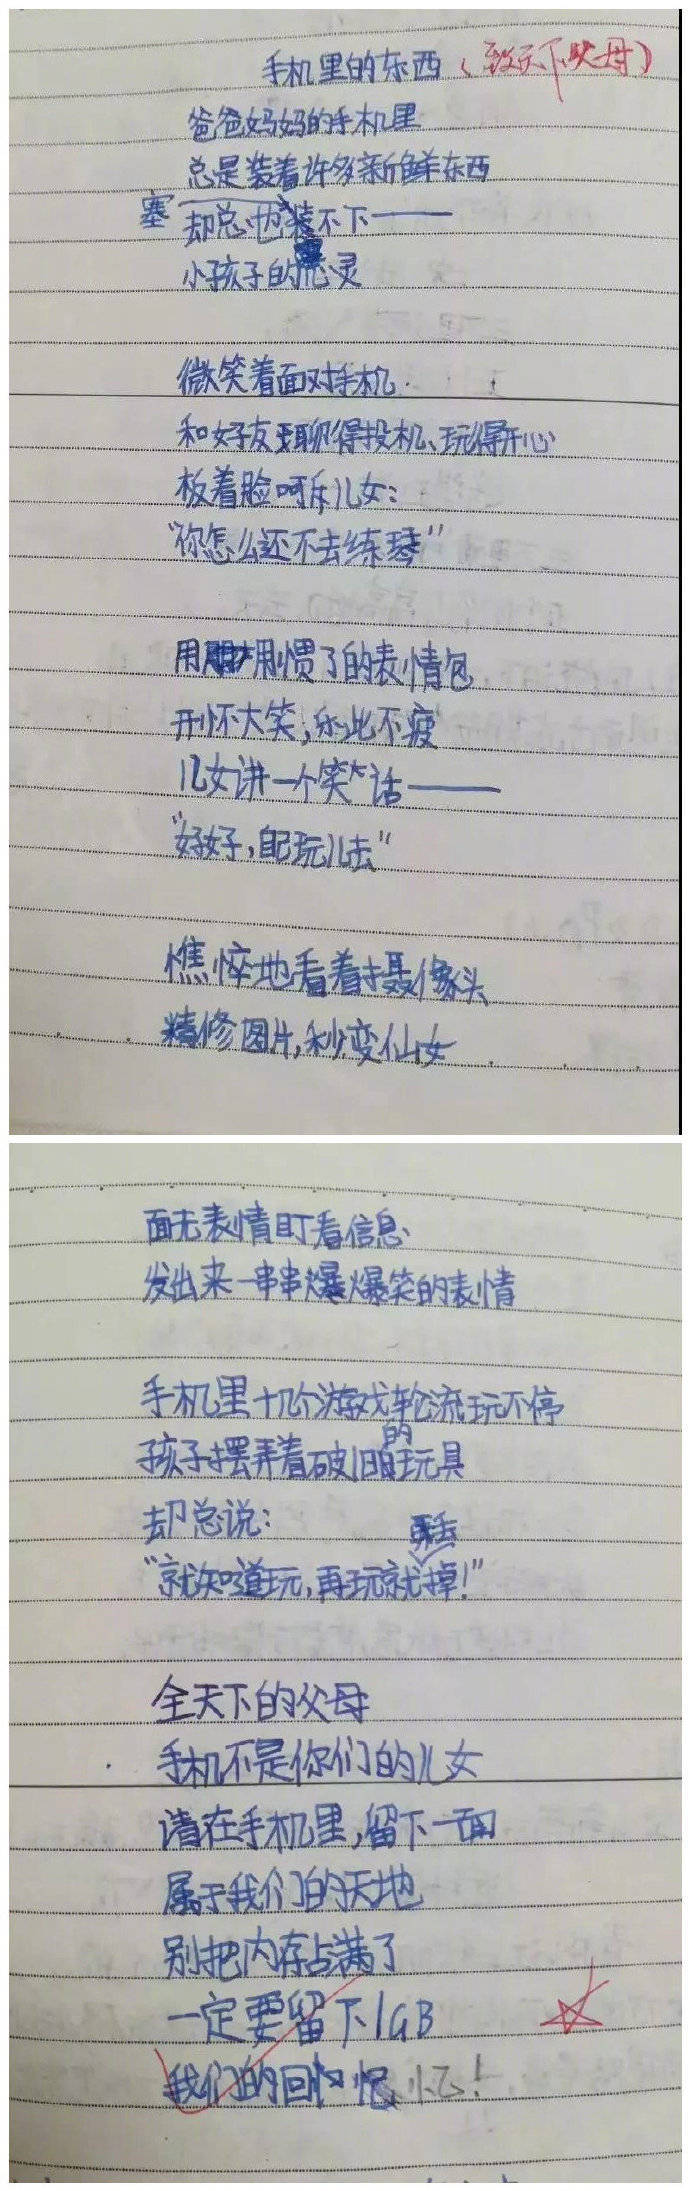 手机里的东西（致天下父母）
爸爸妈妈的手机里
总是装着许多新鲜东西
塞
却总也装不下——
小孩子的心灵
微笑着面对手机
和好友聊得投机、玩得开心
板着脸呵斥儿女：
“你怎么还不去练琴”
用用惯了的表情包
开怀大笑，乐此不疲
儿女讲一个笑话——
“好好，自己玩儿去”
憔悴地看着摄像头
精修图片，秒变仙女
面无表情盯着信息
发出来一串串爆爆笑的表情
手机里十几个游戏轮流玩不停
的
孩子摆弄着破旧玩具
却总说：
“就知道玩，再玩就掉！”
全天下的父母
手机不是你们的儿女
请在手机里，留下一面
属于我们的天地
别把内存占满了
一定要留下1GB
我们的回忆！